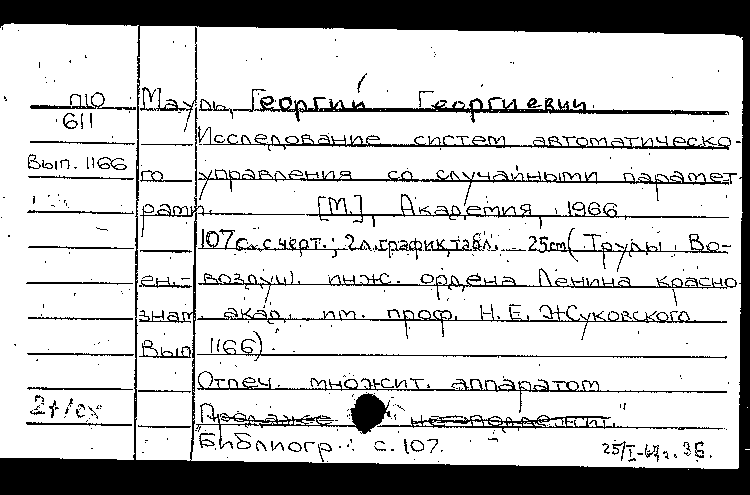 П10 Мауль, Георгий Георгиевич.
611
Исследование систем автоматическо-
Вып. 1166 го управления со случайными парамет-
рами. [М.], Академия, 1966.
107 с. с черт.; 2 л. график, табл. 25 cm (Труды Во-
ен.-воздуш. инж. ордена Ленина красно-
знам. акад. им. проф. Н. Е. Жуковского.
Вып. 1166).
Отпеч. множит. аппаратом
2+/ex "Продаже не подлежит."
Библиогр.: с. 107. 25/I-67г.